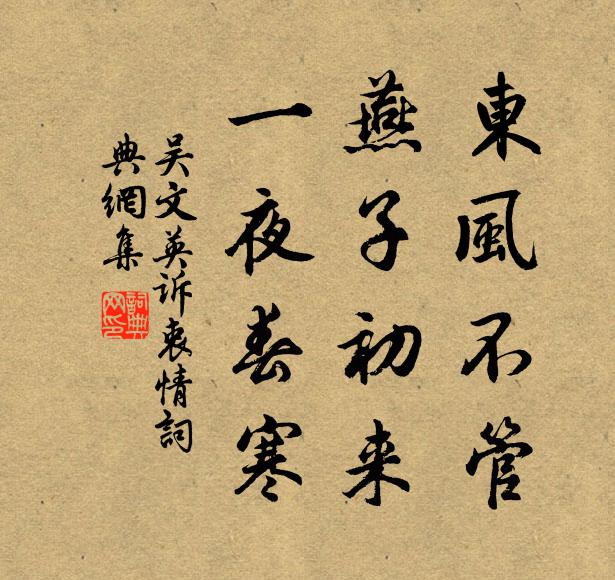 東風不管
燕子初来
一夜春寒
吴文英訴衷情詞
典網集
詞典网印